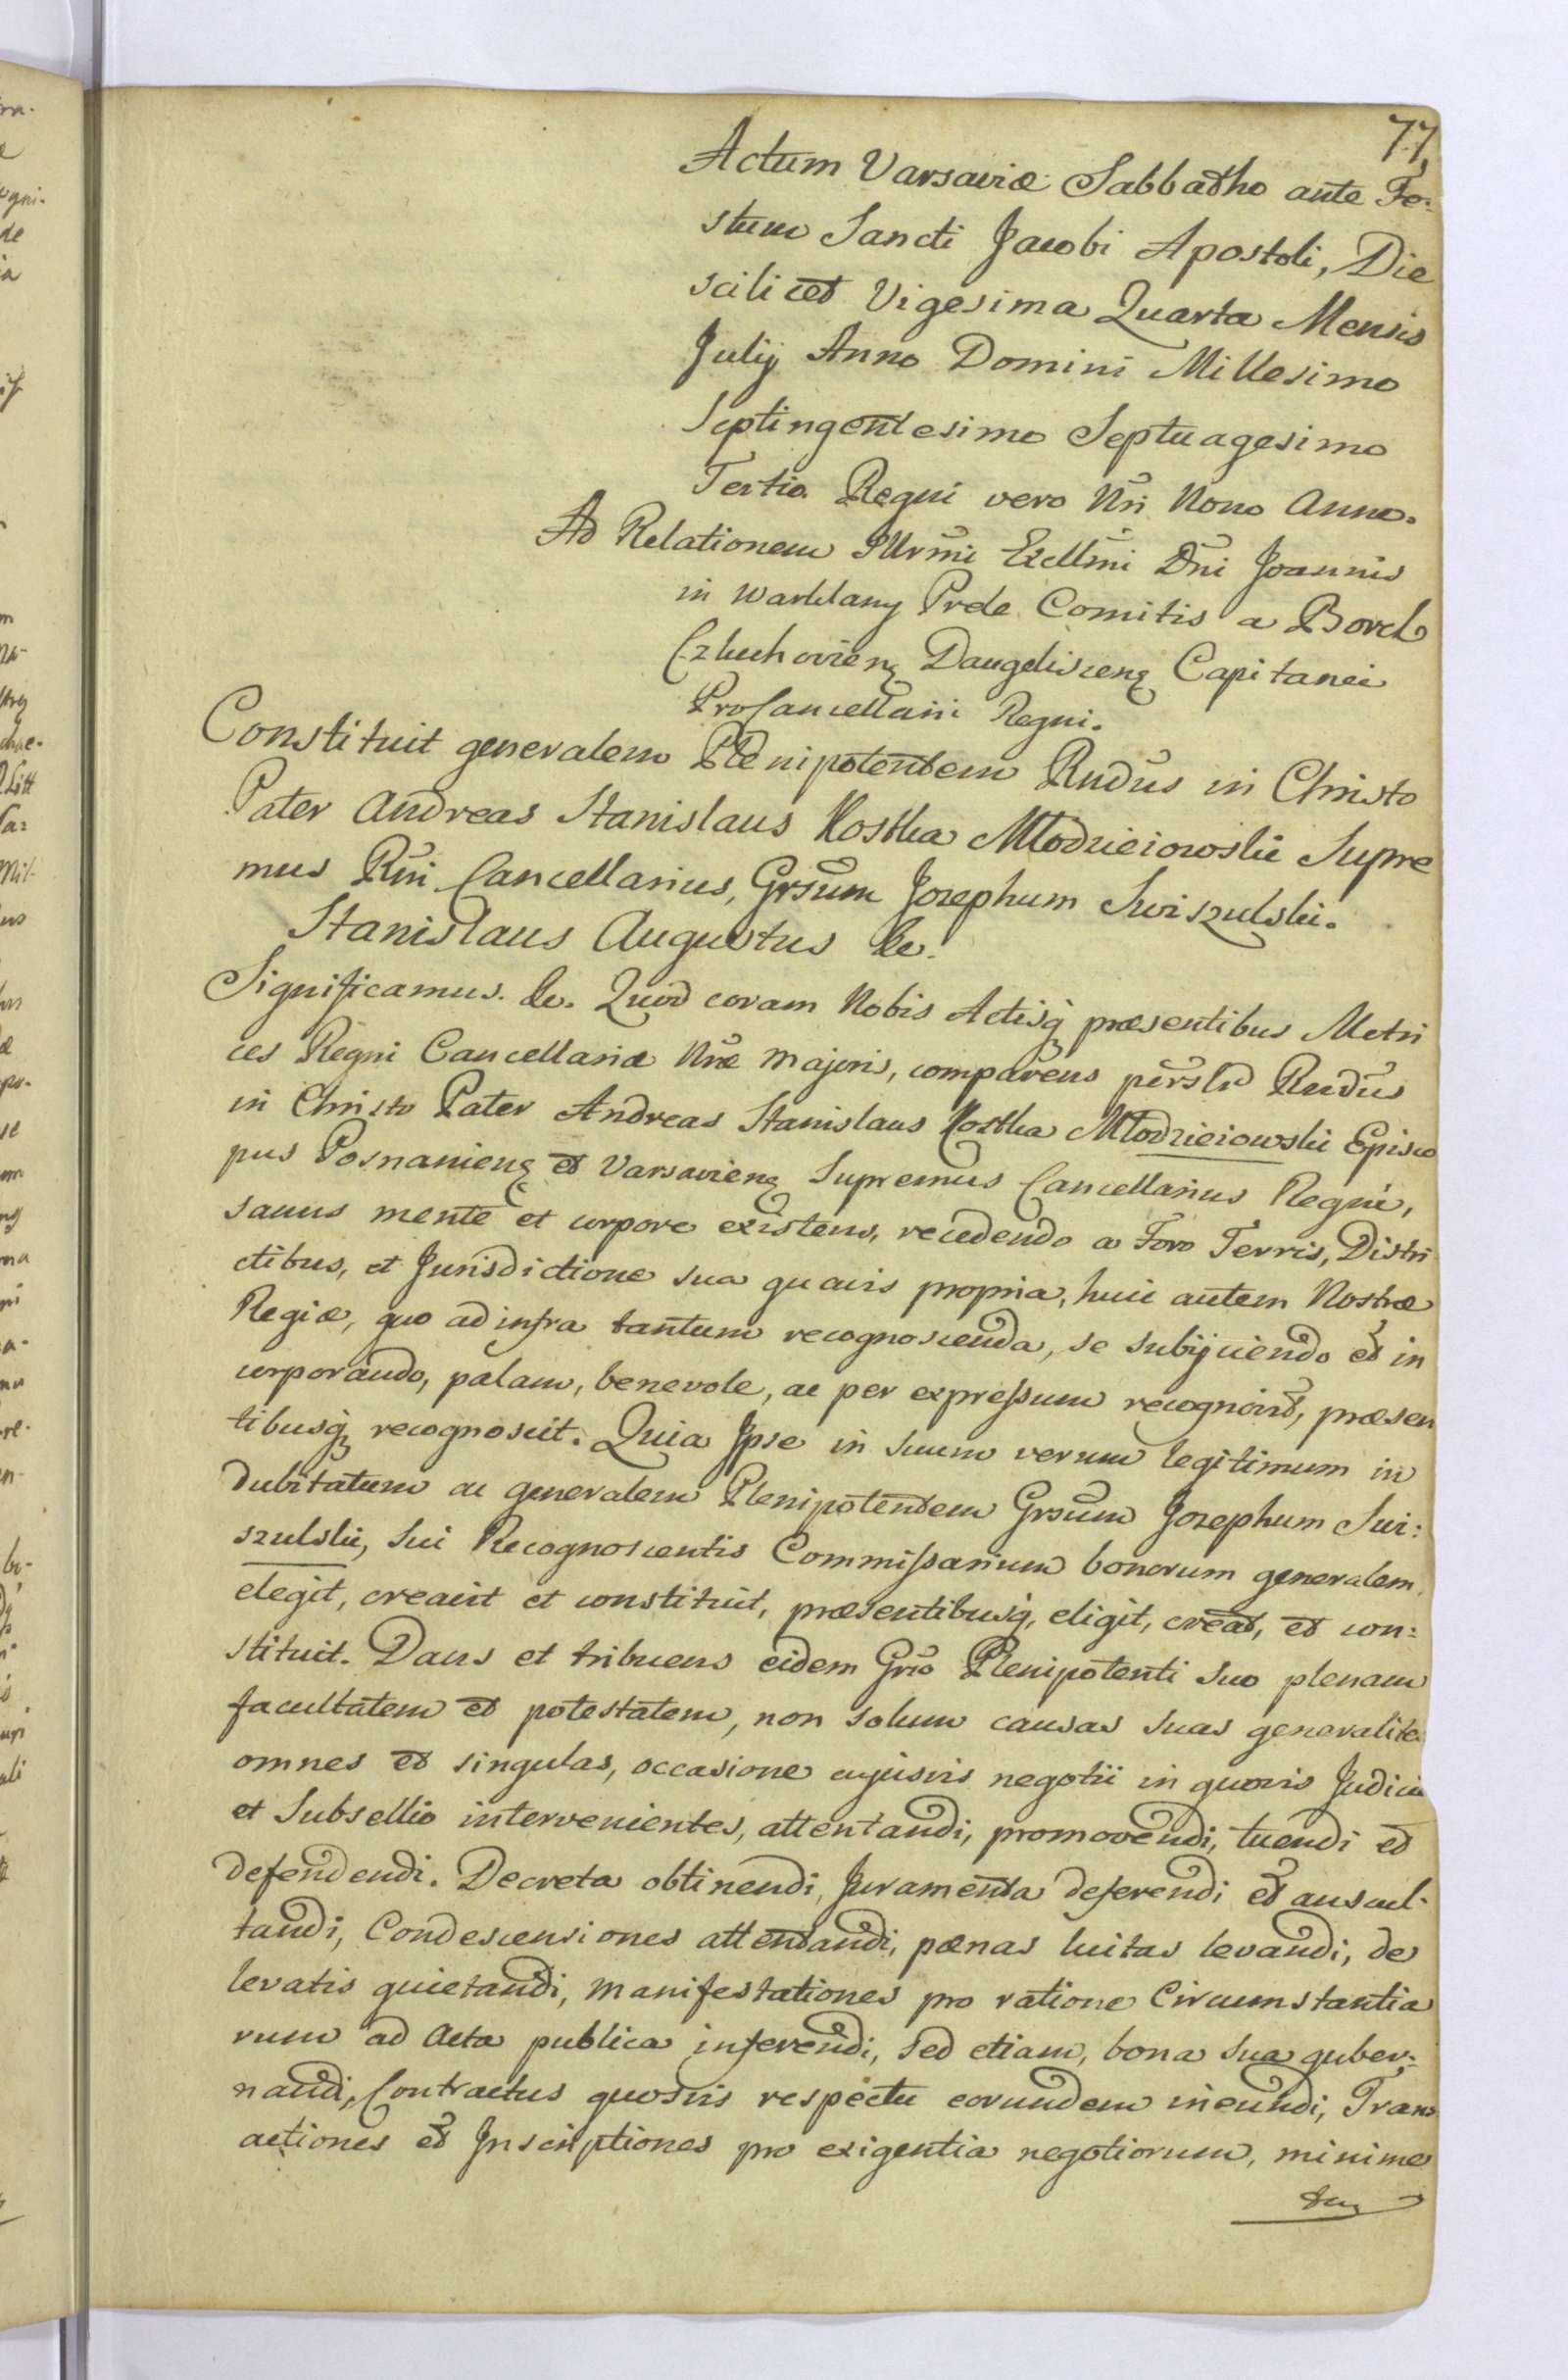 77
Actum Varsaviæ Sabbatho ante Fe:
stum Sancti Jacobi Apostoli, Die
scilicet Vigesima Quarta Mensis
Julij Anno Domini Millesimo
Septingentesimo Septuagesimo
Tertio Regni vero Nri Nono Anno.
Ad Relationem Illrmi Exllmi Dni Joannis
in Warklany Prele Comitis a Borch
Czluchovienς Daugelisцenς Capitanei
ProCancellarii Regni.
Constituit generalem Plenipotentem Rndus in Christo
Pater Andreas Stanislaus Kostka Młodzieiowski Supre
mus Rni Cancellarius, Grsum Josephum Swiszulski.
Stanislaus Augustus &c.
Significamus. &c. Quod coram Nobis Actisq præsentibus Metri
ces Regni Cancellariæ Nræ Majoris, comparens persltr Rndus
in Christo Pater Andreas Stanislaus Kostka Młodzieiowski Episco
pus Posnanienς et Varsavienς Supremus Cancellarius Regni,
sanus mente et corpore existens, recedendo a Foro Terris, Distri
ctibus, et Jurisdictione sua quavis propria, huic autem Nostræ
Regiæ, quo ad infra tantum recognoscenda, se subijciendo et in
corporando, palam, benevole, ac per expressum recognovit, præsen
tibusq recognoscit. Quia Ipse in suum verum legitimum in
dubitatum ac generalem Plenipotentem Grsum Josephum Swi:
szulski, sui Recognoscentis Commissarium bonorum generalem
elegit, creavit et constituit, præsentibusq, eligit, creat, et con:
stituit. Dans et tribuens eidem Grso Plenipotenti suo plenam
facultatem et potestatem, non solum causas suas generalite
omnes et singulas, occasione cujusvis negotii in quovis Judicio
et Subsellio intervenientes, attentandi, promovendi, tuendi et
defendendi. Decreta obtinendi, Juramenta deferendi et auscul-
tandi, Condescensiones attentandi, pænas luitas levandi, de
levatis quietandi, Manifestationes pro ratione Circumstantia
rum ad Acta publica inferendi, sed etiam, bona sua guber:
nandi, Contractus quosvis respectu eorundem ineundi, Trans
actiones et Inscriptiones pro exigentia negotiorum, minime